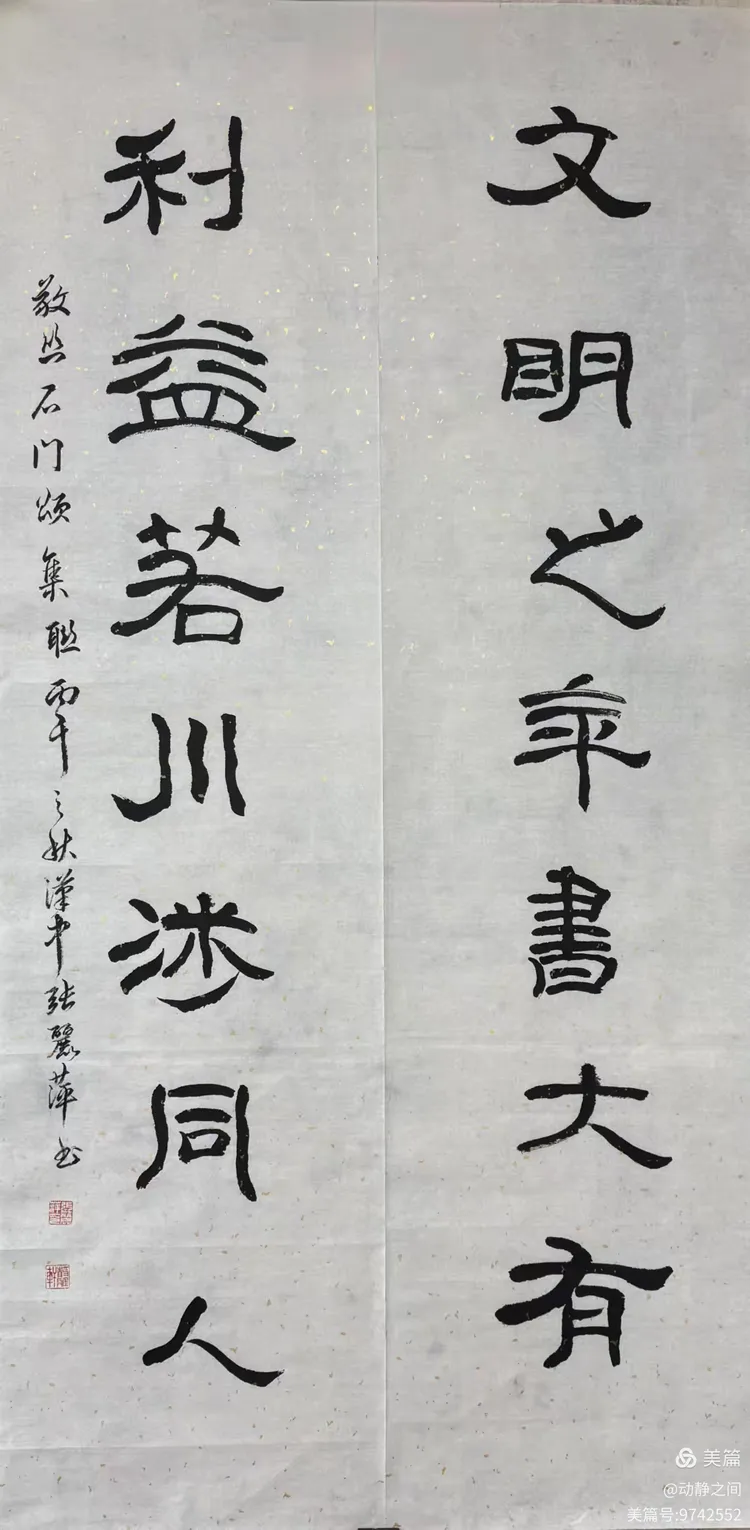 文明之年書大有
利益若川涉同人
敬石门颂集联丙午之秋漢中张麗萍书
美篇
@动静之间
美篇号:9742552